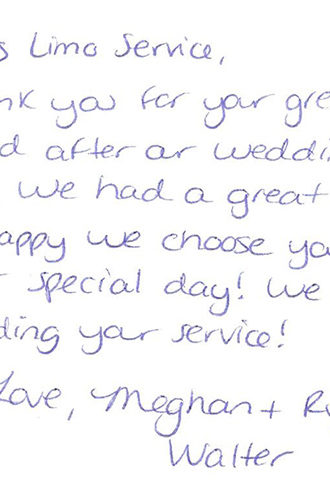 s Limo Service,
nk you for your gre
d after our weddi
we had a great
appy we choose yo
special day! We
ding your service!
Love, Meghan + R
Walter